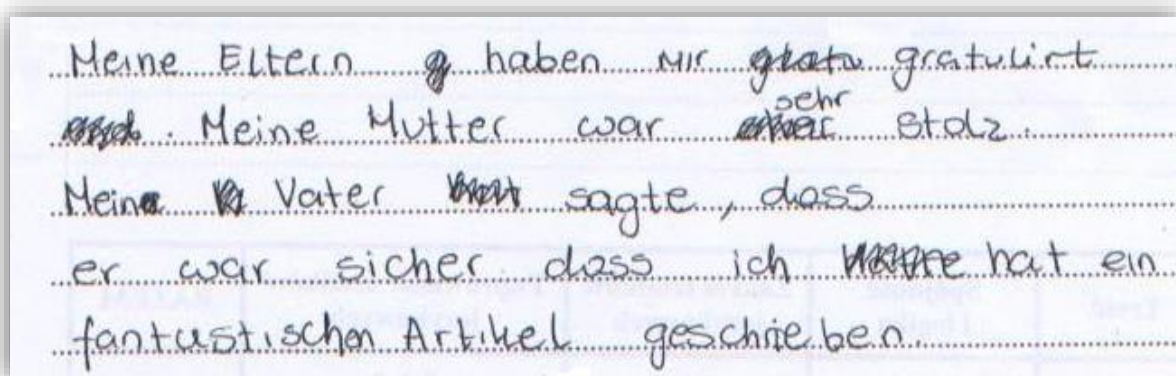 Meine Eltern haben mir gratulirt
. Meine Mutter war sehr stolz.
Mein Vater sagte, dass
er war sicher dass ich hat ein
fantastischen Artikel geschrieben.